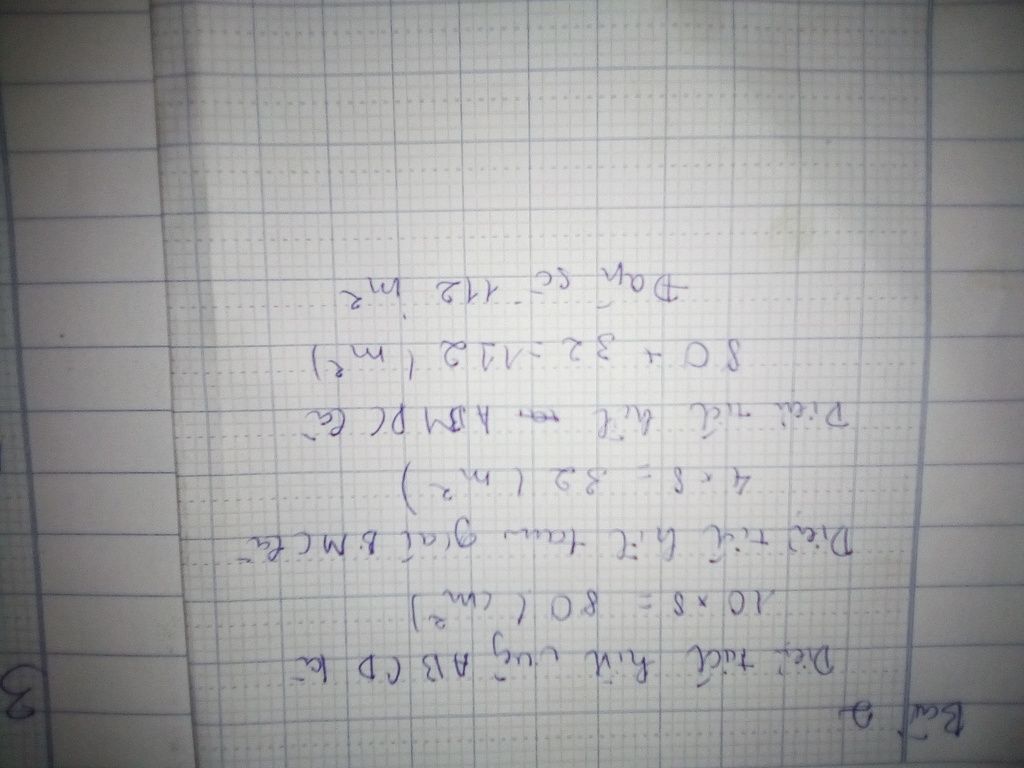 Bài 2
Diện tích hình vuông ABCD là
10 × 8 = 80 (cm²)
Diện tích hình tam giác BMC là
4 × 8 = 32 (m²)
Diện tích hình ABMDC là
80 + 32 = 112 (m²)
Đáp số 112 m²
3